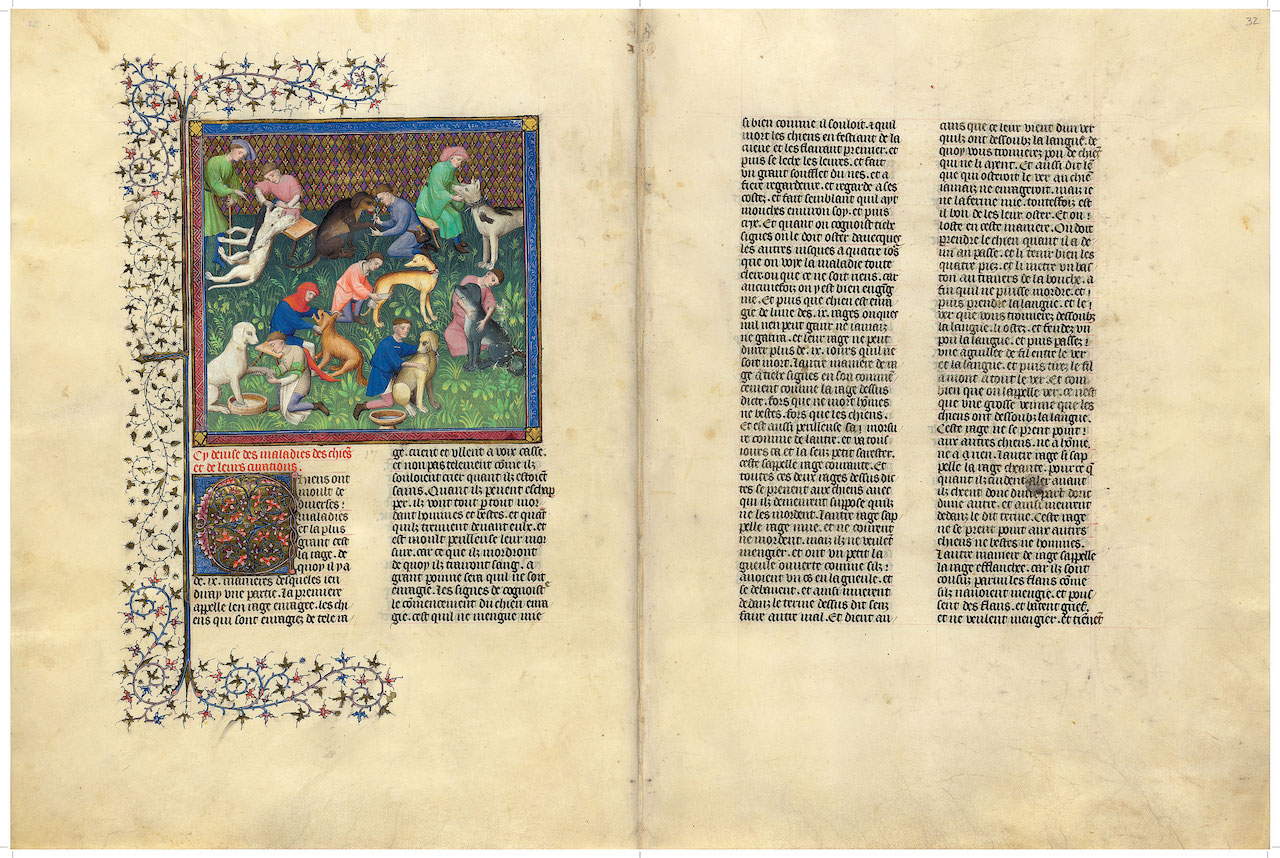 32
Cy devise des maladies des chiēs
et de leurs curations.
Chiens ont
moult de
diverses
maladies
et la plus
grant cest
la rage. de
quoy il y a
de .ix. manieres desqueles ien
diray une partie. La premiere
appelle len rage enragee. les chi
ens qui sont enragiez de tele ra
ge. crient et ullent a voix casse.
et non pas telement cōme ilz
souloient crier quant ilz estoiēt
sains. Quant ilz peuent eschap
per. ilz vont tout par tout mor
dant hommes et bestes. et quāt
quilz treuvent devant eulx. et
est moult perilleuse leur mor
sure. car ce que ilz mordront
de quoy ilz trairont sang. a
grant poinne sera quil ne soit
enragie. Les signes de cognoistē
le cōmencement du chien enra
gie. cest quil ne mengue mie
si bien comme il souloit. et quil
mort les chiens en festiant de la
cueue et les flairant premier. et
puis se leche les leures. et fait
un grant soufflet du nes. et a
fiere regardeure. et regarde a ses
costez. et fait semblant quil ayt
mouches environ soy. et puis
crye. Et quant on cognoist tielx
signes on le doit oster davecques
les autres iusques a quatre iōs
que on voye la maladie toute
clere. ou que ce ne soit riens. car
aucunefois on y est bien engig
nie. Et puis que chien est enra
gie de lune des .ix. rages onques
nul nen peut garir ne iamaiz
ne garira. et leur rage ne peut
durer plus de .ix. iours quil ne
soit mort. Lautre maniere de ra
ge a tielx signes en son commē
cement comme la rage dessus
dicte. fors que ne mort hōmes
ne bestes. fors que les chiens.
Et est aussi perilleuse sa morsu
re comme de lautre. et va tous
iours ca et la senz point sarester.
ceste sappelle rage courante. Et
toutes ces deux rages dessus dic
tes se prenent aux chiens avec
qui ilz demeurent suppose quilz
ne les mordent. Lautre rage sap
pelle rage mue. et ne courent
ne mordent. mais ilz ne veulēt
mengier. et ont un petit la
gueule ouverte comme silz
avoient un os en la gueule. et
se debatent. et ainsi muerent
dedanz le terme dessus dit senz
faire autre mal. Et dient au
cuns que ce leur vient dun ver
quilz ont dessoubz la langue. de
quoy vous trouverez pou de chiēs
qui ne li ayent. Et aussi dit le
que qui osteroit le ver au chiē
iamaiz ne enrageroit. mais ie
ne lafferme mie. toutesfoiz est
il bon de les leur oster. Et on
loste en ceste maniere. On doit
prendre le chien quant il a de
un an passe. et li tenir bien les
quatre piez. et li metre un bas
ton au travers de la bouche. a
fin quil ne puisse mordre. et
puis prendre la langue. et le
ver que vous trouverez dessoubz
la langue. li ostez. et fendez un
pou la langue. et puis passez
une aguillee de fil entre le ver
et la langue. et puis tirez le fil
a mont a tout le ver. Et com
bien que on lappelle ver. ce nest
que une grosse veinne que les
chiens ont dessoubz la langue.
Ceste rage ne se prent point
aux autres chiens. ne a hōme.
ne a riens. Lautre rage si sap
pelle la rage cheante. pour ce q̄
quant ilz cuident aler avant
ilz cheent donc dune part donc
dune autre. et ainsi meurent
dedanz le dit terme. Ceste rage
ne se prent point aux autres
chiens ne bestes ne hommes.
Lautre maniere de rage sappelle
la rage efflanchee. car ilz sont
cousuz parmi les flans cōme
silz navoient mengie. et pous
sent des flans. et batent grief.
et ne veulent mengier. et tienēt